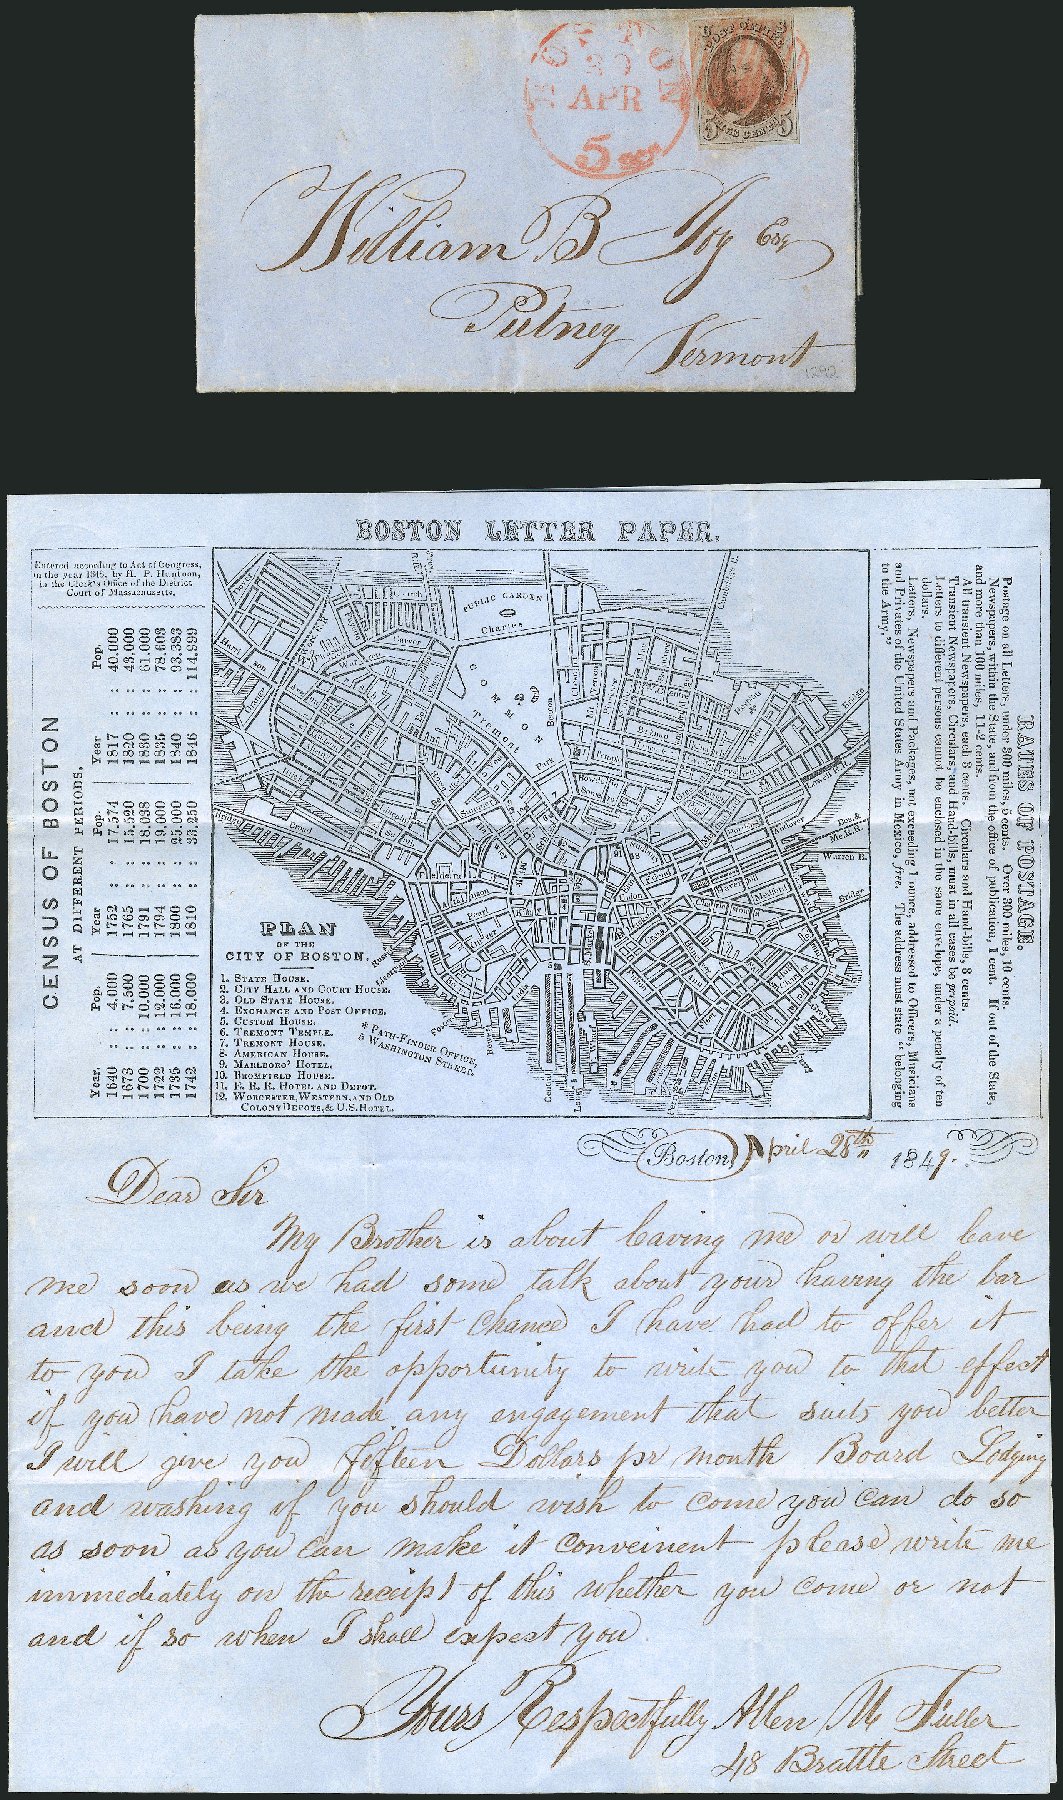 BOSTON
30
APR
5 cts
POST OFFICE
FIVE CENTS
5 5
William B Joy Esq
Putney
Vermont
1292
BOSTON LETTER PAPER.
Entered according to Act of Congress,
in the year 1846, by H. P. Huntoon,
in the Clerk's Office of the District
Court of Massachusetts.
CENSUS OF BOSTON
AT DIFFERENT PERIODS.
Year. Pop. Year Pop. Year Pop.
1640 " 4,000 1752 " 17,574 1817 " 40,000
1673 " 7,500 1765 " 15,520 1820 " 43,000
1700 " 10,000 1791 " 18,038 1830 " 61,000
1722 " 12,000 1794 " 19,000 1835 " 78,603
1735 " 16,000 1800 " 25,000 1840 " 93,383
1742 " 18,000 1810 " 33,250 1846 " 114,999
PUBLIC GARDEN
Charles
COMMON
Tremont
Beacon
Park
Broad
Pearl
Warren B.
Bridge
PLAN
OF THE
CITY OF BOSTON.
1. STATE HOUSE.
2. CITY HALL AND COURT HOUSE.
3. OLD STATE HOUSE.
4. EXCHANGE AND POST OFFICE.
5. CUSTOM HOUSE.
6. TREMONT TEMPLE.
7. TREMONT HOUSE.
8. AMERICAN HOUSE.
9. MARLBORO' HOTEL.
10. BROMFIELD HOUSE.
11. E. R. R. HOTEL AND DEPOT.
12. WORCESTER, WESTERN, AND OLD
COLONY DEPOTS, & U.S. HOTEL.
* PATH-FINDER OFFICE,
5 WASHINGTON STREET.
RATES OF POSTAGE.
Postage on all Letters, under 300 miles, 5 cents. Over 300 miles, 10 cents.
Newspapers, within the State, and from the office of publication, 1 cent. If out of the State,
and more than 100 miles, 1 1-2 cents.
All transient Newspapers, each 3 cents. Circulars and Hand-bills, 3 cents.
Transient Newspapers, Circulars, and Hand-bills, must in all cases be prepaid.
Letters to different persons cannot be enclosed in the same envelope, under a penalty of ten
dollars.
Letters, Newspapers and Packages, not exceeding 1 ounce, addressed to Officers, Musicians
and Privates of the United States Army in Mexico, free. The address must state "belonging
to the Army."
Boston, April 28th 1849.
Dear Sir
My Brother is about leaving me or will leave
me soon as we had some talk about your having the bar
and this being the first chance I have had to offer it
to you I take the opportunity to write you to that effect
if you have not made any engagement that suits you better
I will give you fifteen Dollars pr month Board Lodging
and washing if you should wish to come you can do so
as soon as you can make it conveinent please write me
immediately on the receipt of this whether you come or not
and if so when I shall expect you
Yours Respectfully Allen M Fuller
48 Brattle Street